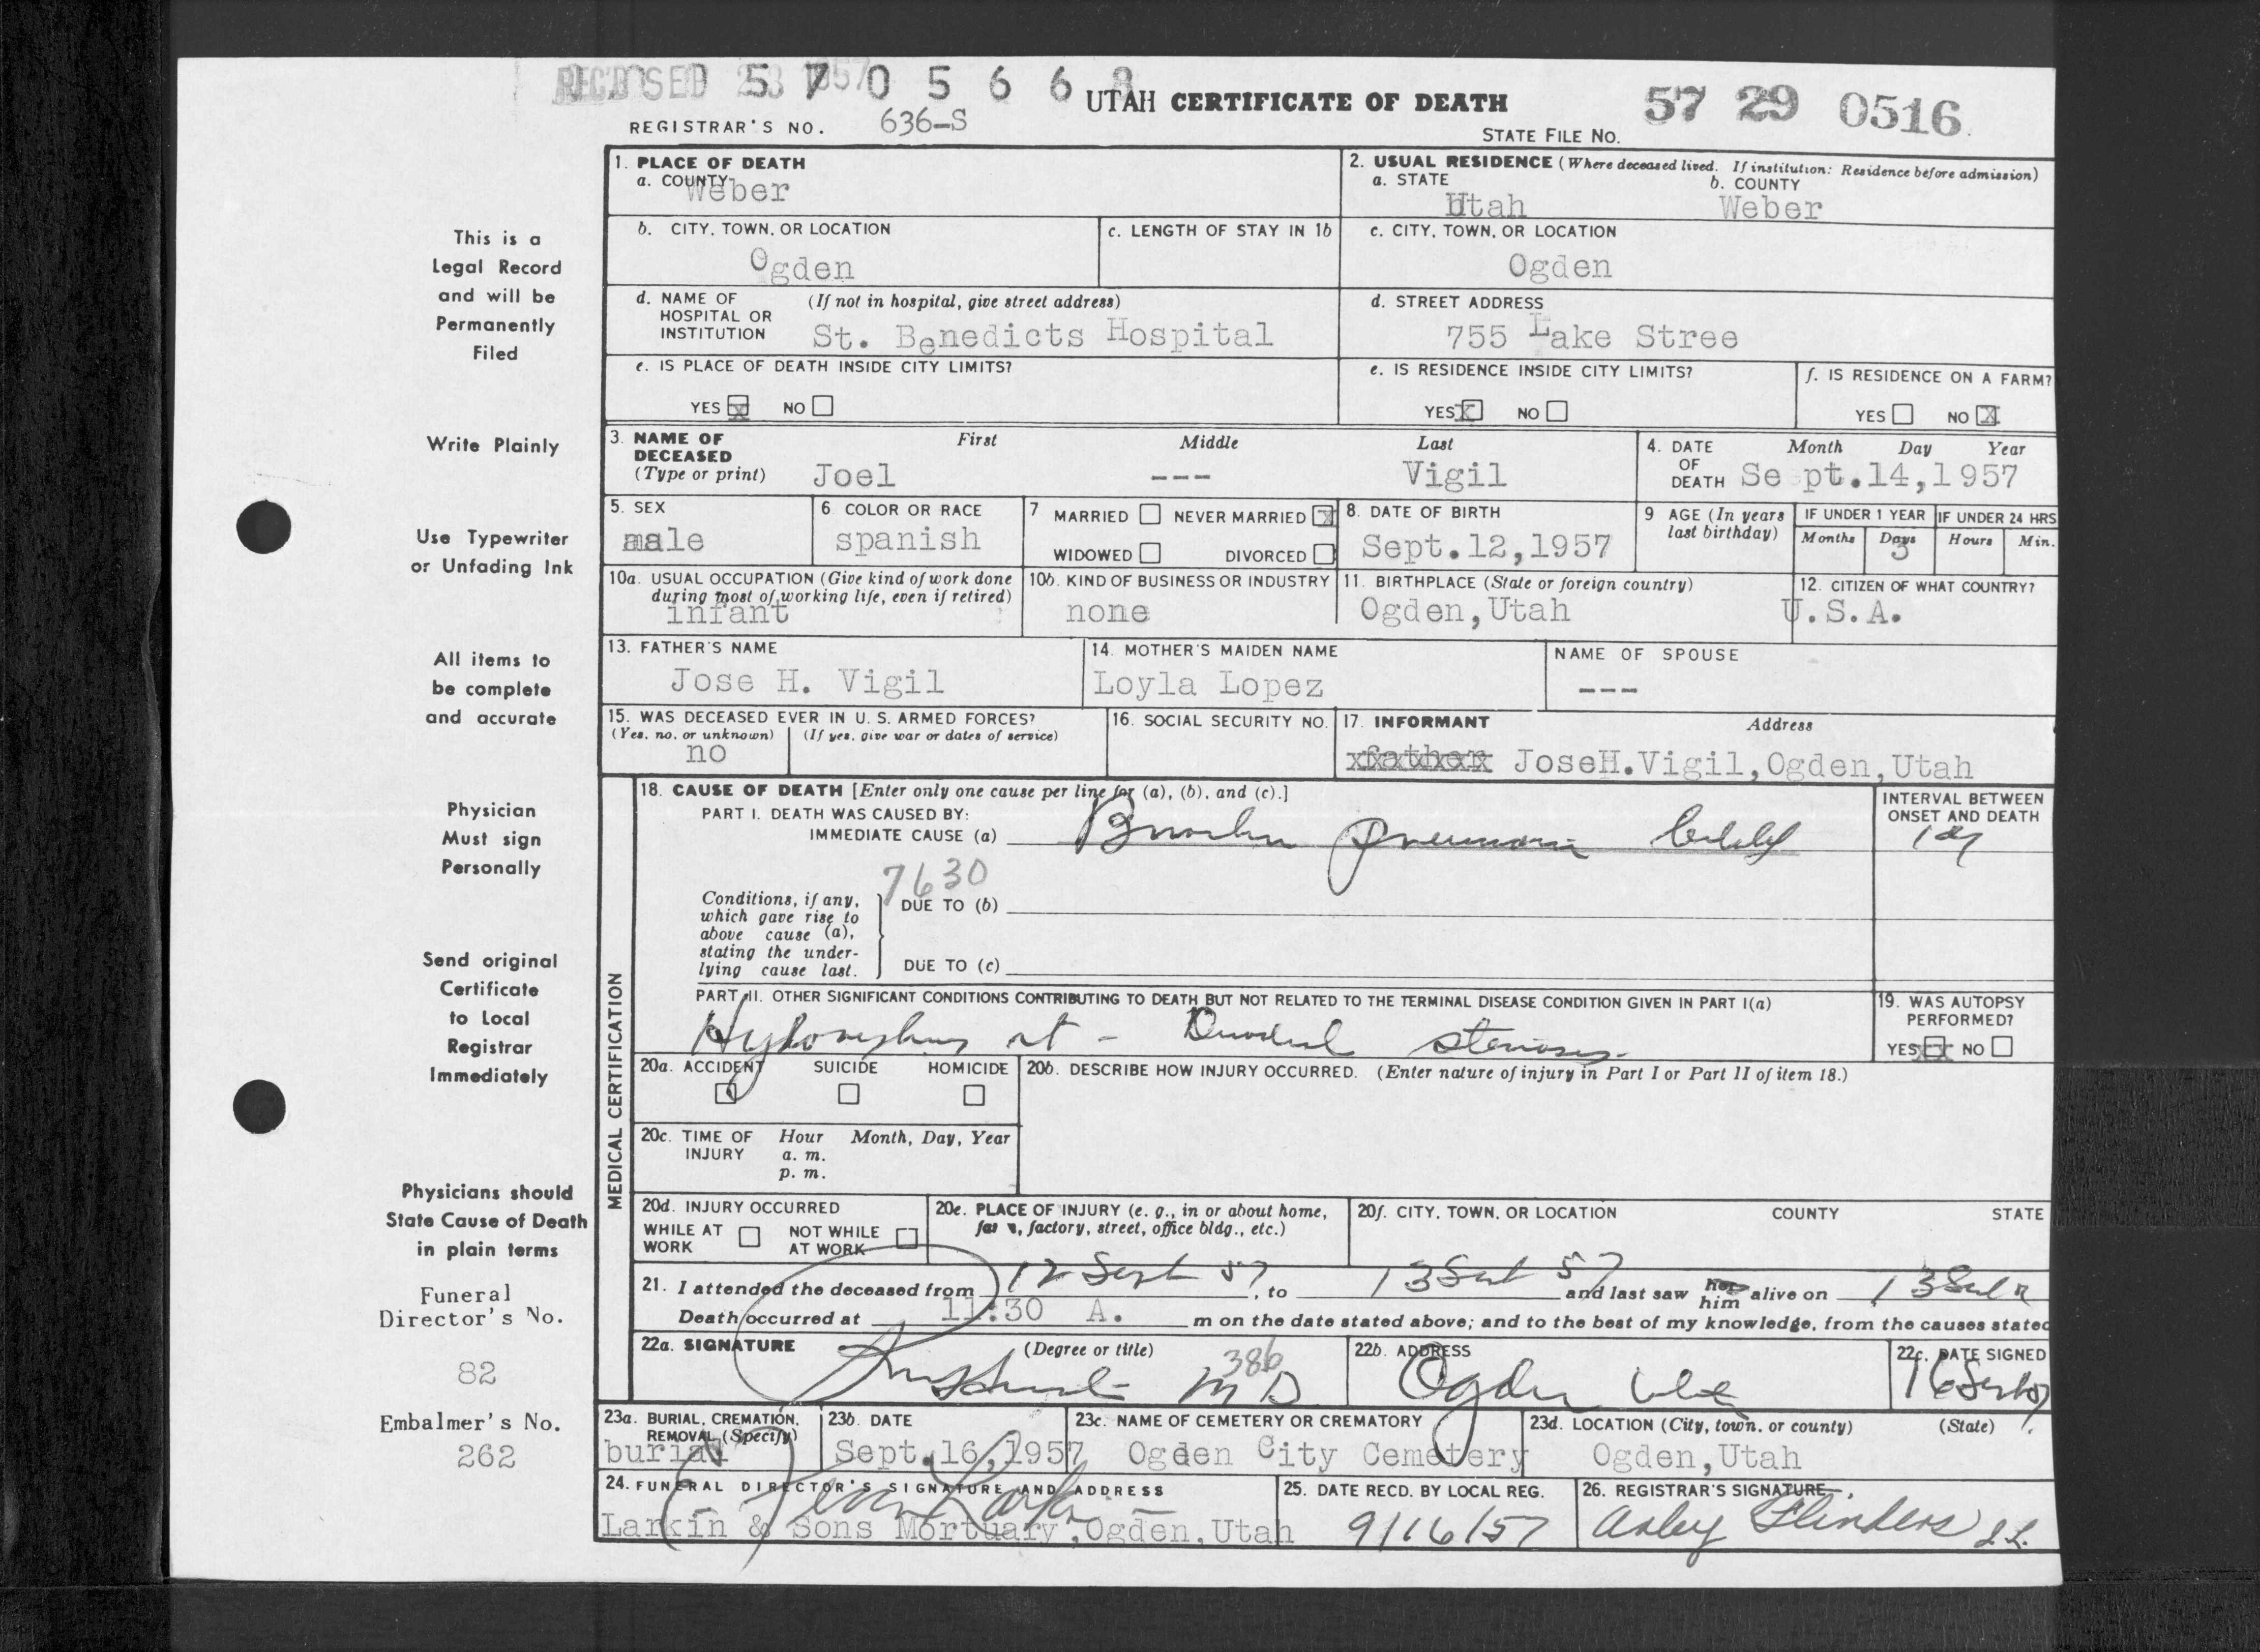 REC'D SEP 23 1957
5 7 0 5 6 6 8
UTAH CERTIFICATE OF DEATH
57 29 0516
REGISTRAR'S NO. 636-S
STATE FILE NO.
1. PLACE OF DEATH
a. COUNTY
Weber
2. USUAL RESIDENCE (Where deceased lived. If institution: Residence before admission)
a. STATE b. COUNTY
Utah Weber
b. CITY, TOWN, OR LOCATION
Ogden
c. LENGTH OF STAY IN 1b
c. CITY, TOWN, OR LOCATION
Ogden
d. NAME OF HOSPITAL OR INSTITUTION
(If not in hospital, give street address)
St. Benedicts Hospital
d. STREET ADDRESS
755 Lake Stree
e. IS PLACE OF DEATH INSIDE CITY LIMITS?
YES X NO
e. IS RESIDENCE INSIDE CITY LIMITS?
YES X NO
f. IS RESIDENCE ON A FARM?
YES NO X
3. NAME OF DECEASED
(Type or print)
First Middle Last
Joel --- Vigil
4. DATE OF DEATH
Month Day Year
Sept.14,1957
5. SEX
male
6 COLOR OR RACE
spanish
7 MARRIED NEVER MARRIED X
WIDOWED DIVORCED
8. DATE OF BIRTH
Sept.12,1957
9 AGE (In years last birthday)
IF UNDER 1 YEAR
Months Days
3
IF UNDER 24 HRS
Hours Min.
10a. USUAL OCCUPATION (Give kind of work done during most of working life, even if retired)
infant
10b. KIND OF BUSINESS OR INDUSTRY
none
11. BIRTHPLACE (State or foreign country)
Ogden,Utah
12. CITIZEN OF WHAT COUNTRY?
U.S.A.
13. FATHER'S NAME
Jose H. Vigil
14. MOTHER'S MAIDEN NAME
Loyla Lopez
NAME OF SPOUSE
---
15. WAS DECEASED EVER IN U. S. ARMED FORCES?
(Yes, no, or unknown) (If yes, give war or dates of service)
no
16. SOCIAL SECURITY NO.
17. INFORMANT Address
father JoseH.Vigil,Ogden,Utah
MEDICAL CERTIFICATION
18. CAUSE OF DEATH [Enter only one cause per line for (a), (b), and (c).]
PART I. DEATH WAS CAUSED BY:
IMMEDIATE CAUSE (a) Broncho pneumonia
INTERVAL BETWEEN ONSET AND DEATH
7630
Conditions, if any, which gave rise to above cause (a), stating the underlying cause last.
DUE TO (b)
DUE TO (c)
PART II. OTHER SIGNIFICANT CONDITIONS CONTRIBUTING TO DEATH BUT NOT RELATED TO THE TERMINAL DISEASE CONDITION GIVEN IN PART I(a)
Duodenal stenosis
19. WAS AUTOPSY PERFORMED?
YES XX NO
20a. ACCIDENT SUICIDE HOMICIDE
20b. DESCRIBE HOW INJURY OCCURRED. (Enter nature of injury in Part I or Part II of item 18.)
20c. TIME OF INJURY
Hour Month, Day, Year
a. m.
p. m.
20d. INJURY OCCURRED
WHILE AT WORK NOT WHILE AT WORK
20e. PLACE OF INJURY (e. g., in or about home, farm, factory, street, office bldg., etc.)
20f. CITY, TOWN, OR LOCATION COUNTY STATE
21. I attended the deceased from 12 Sept 57, to 13 Sept 57 and last saw her him alive on 13 Sept
Death occurred at 11:30 A. m on the date stated above; and to the best of my knowledge, from the causes stated
22a. SIGNATURE (Degree or title)
M D
386
22b. ADDRESS
Ogden Utah
22c. DATE SIGNED
16 Sept 57
23a. BURIAL, CREMATION, REMOVAL (Specify)
burial
23b. DATE
Sept.16,1957
23c. NAME OF CEMETERY OR CREMATORY
Ogden City Cemetery
23d. LOCATION (City, town, or county) (State)
Ogden,Utah
24. FUNERAL DIRECTOR'S SIGNATURE AND ADDRESS
Larkin & Sons Mortuary,Ogden,Utah
25. DATE RECD. BY LOCAL REG.
9/16/57
26. REGISTRAR'S SIGNATURE
Flinders
This is a
Legal Record
and will be
Permanently
Filed
Write Plainly
Use Typewriter
or Unfading Ink
All items to
be complete
and accurate
Physician
Must sign
Personally
Send original
Certificate
to Local
Registrar
Immediately
Physicians should
State Cause of Death
in plain terms
Funeral
Director's No.
82
Embalmer's No.
262